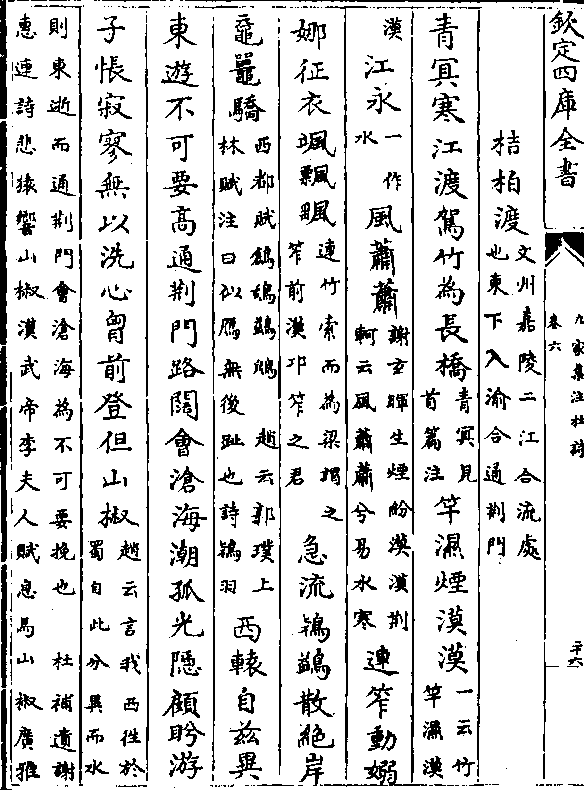 欽定四庫全書
九家集注杜詩
卷六
桔柏渡
文州嘉陵二江合流處
也東下入渝合通荆門
青冥寒江渡駕竹為長橋
青冥見
首篇注
竿濕煙漠漠
一云竹
竿濕漠
漠
江永
一作
水
風蕭蕭
謝玄暉生煙紛漠漠荆
軻云風蕭蕭兮易水寒
連笮動嫋
娜征衣颯飄飖
連竹索而為梁謂之
笮前漢卭笮之君
急流鴇鷁散絶岸
黿鼉驕
西都賦鶬鴰鴇鶂 趙云郭璞上
林賦注曰似鴈無後趾也詩鴇羽
西轅自兹異
東遊不可要高通荆門路闊會滄海潮孤光隱顧盼游
子悵寂寥無以洗心胷前登但山椒
趙云言我西徃於
蜀自此分異而水
則東逝而通荆門會滄海為不可要挽也 杜補遺謝
惠連詩悲猿響山椒漢武帝李夫人賦息馬山椒廣雅